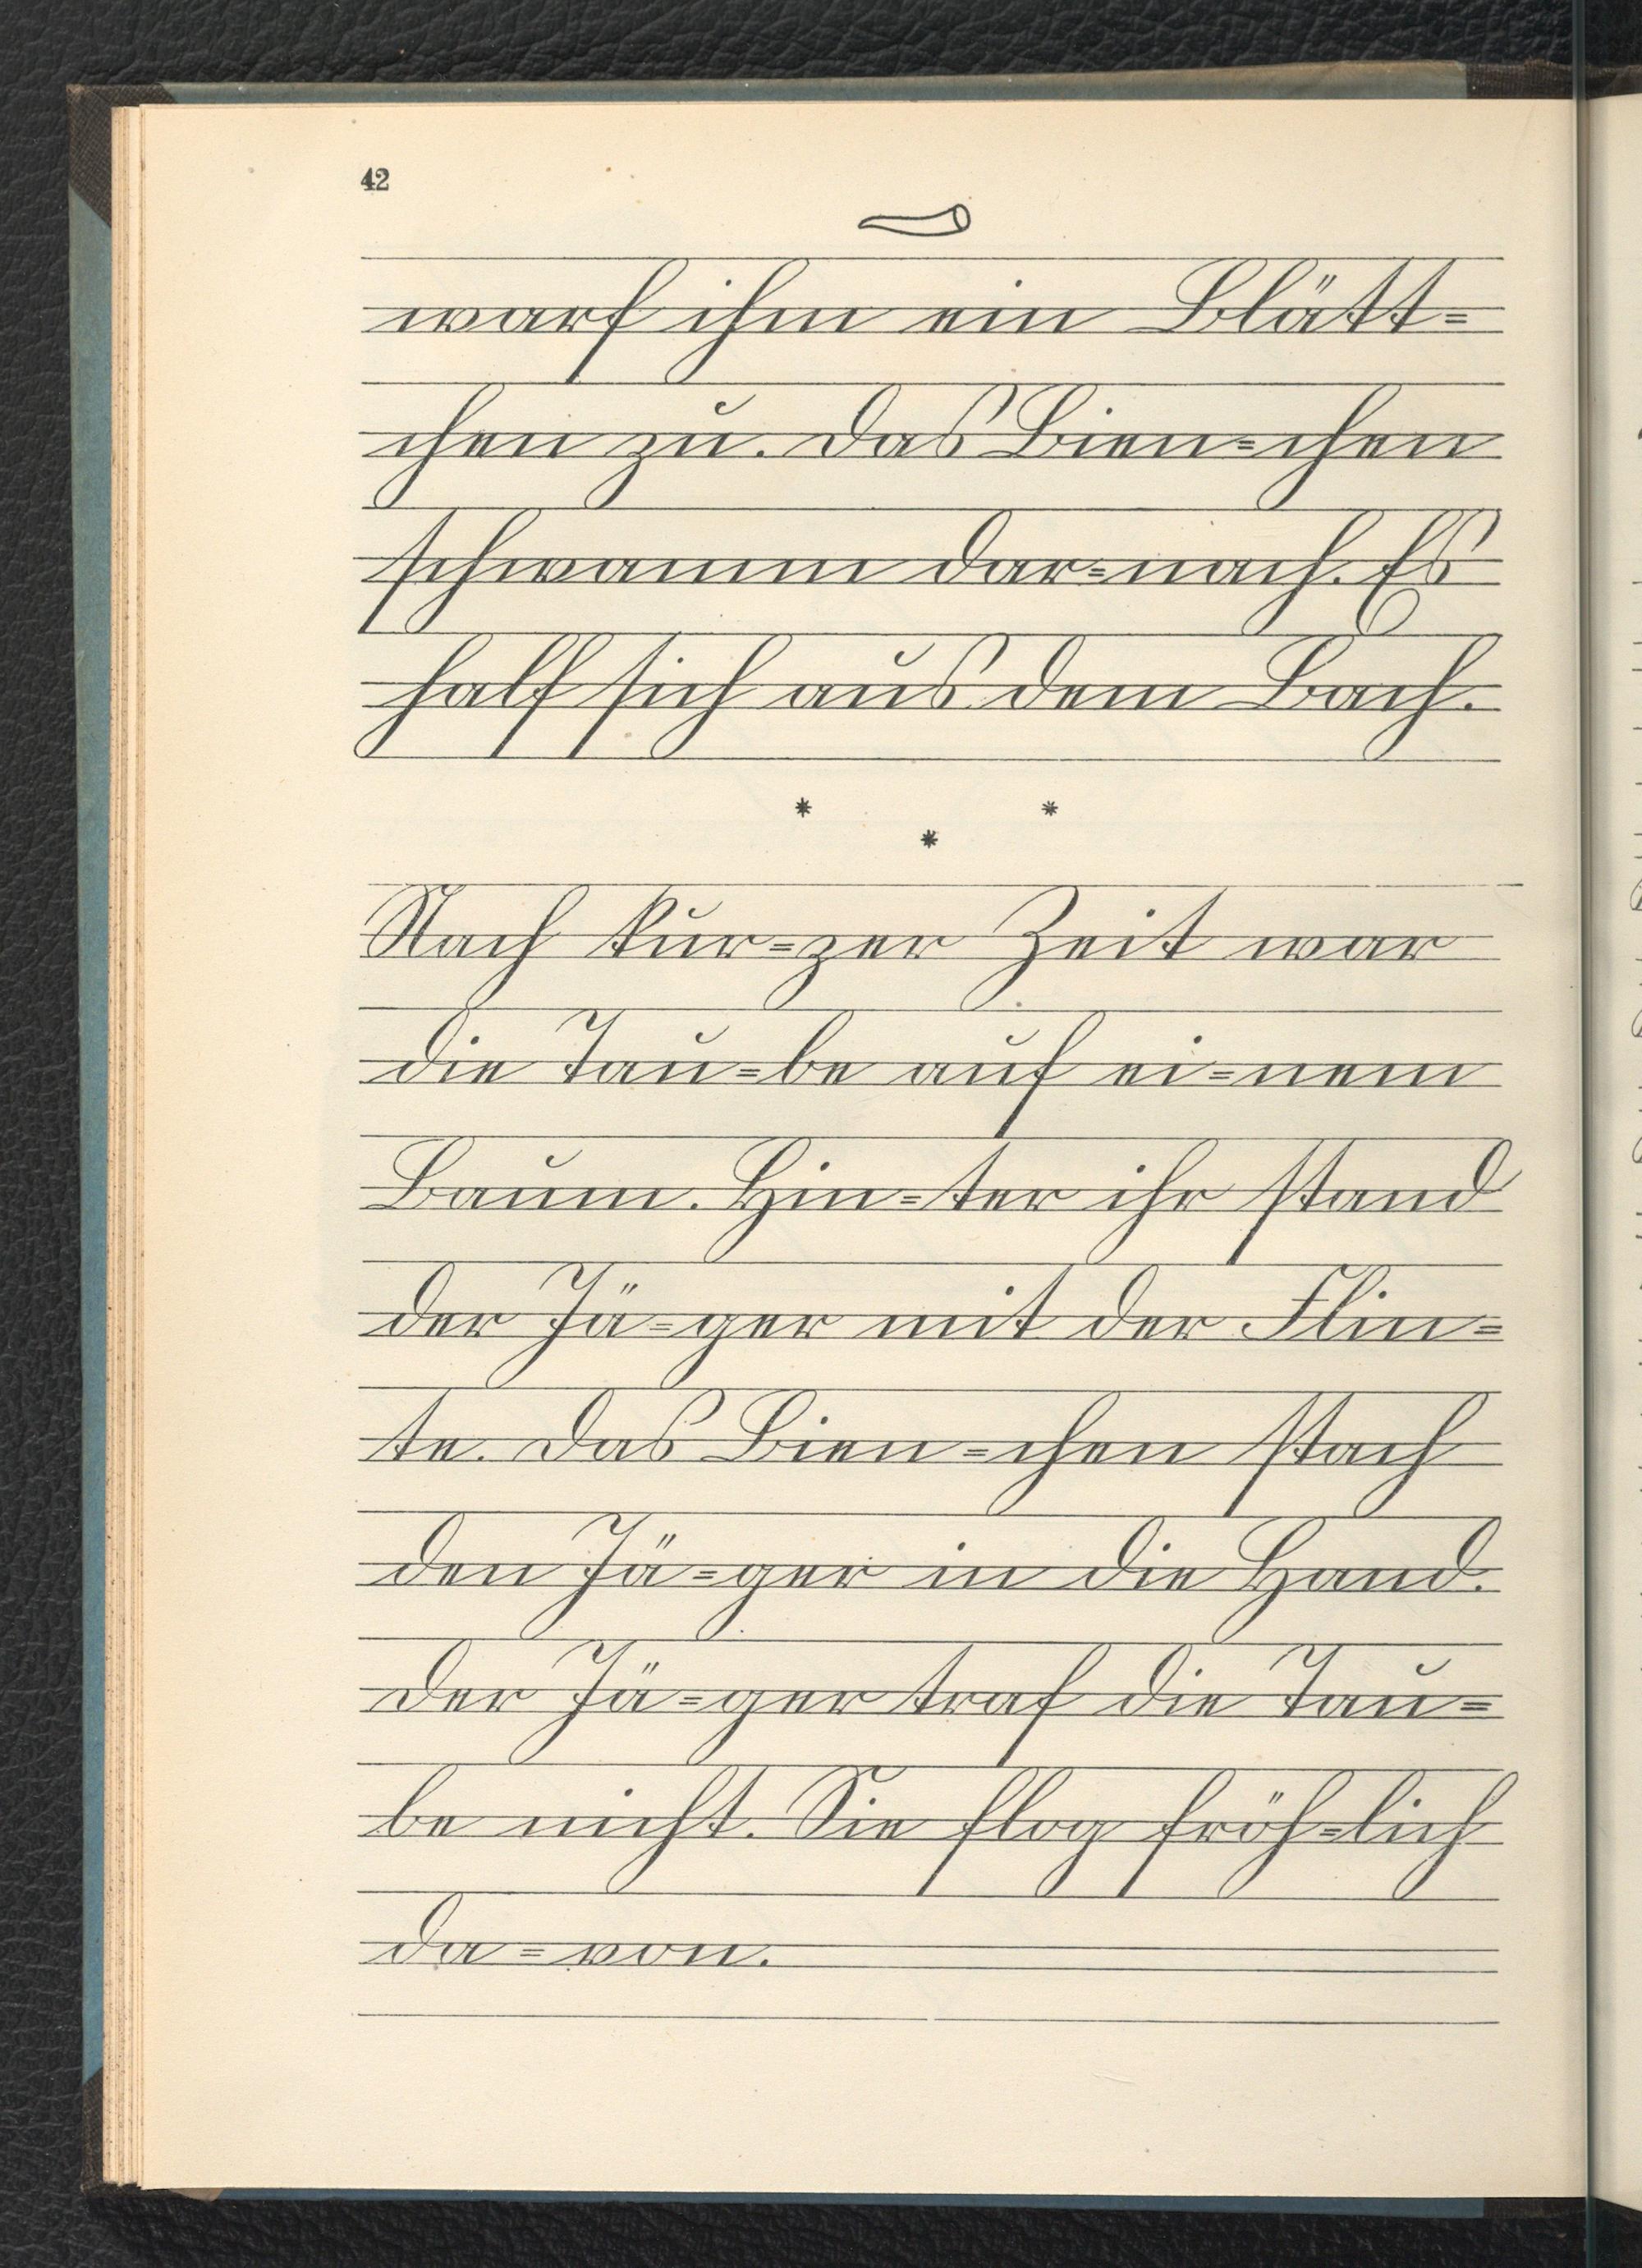 42
warf ihm ein Blätt=
chen zu. Das Bien=chen
schwamm dar=nach. Es
half sich aus dem Bach.
* * *
Nach kur=zer Zeit war
die Tau=be auf ei=nem
Baum. Hin=ter ihr stand
der Jä=ger mit der Flin=
te. Das Bien=chen stach
den Jä=ger in die Hand.
Der Jä=ger traf die Tau=
be nicht. Sie flog fröh=lich
da=von.